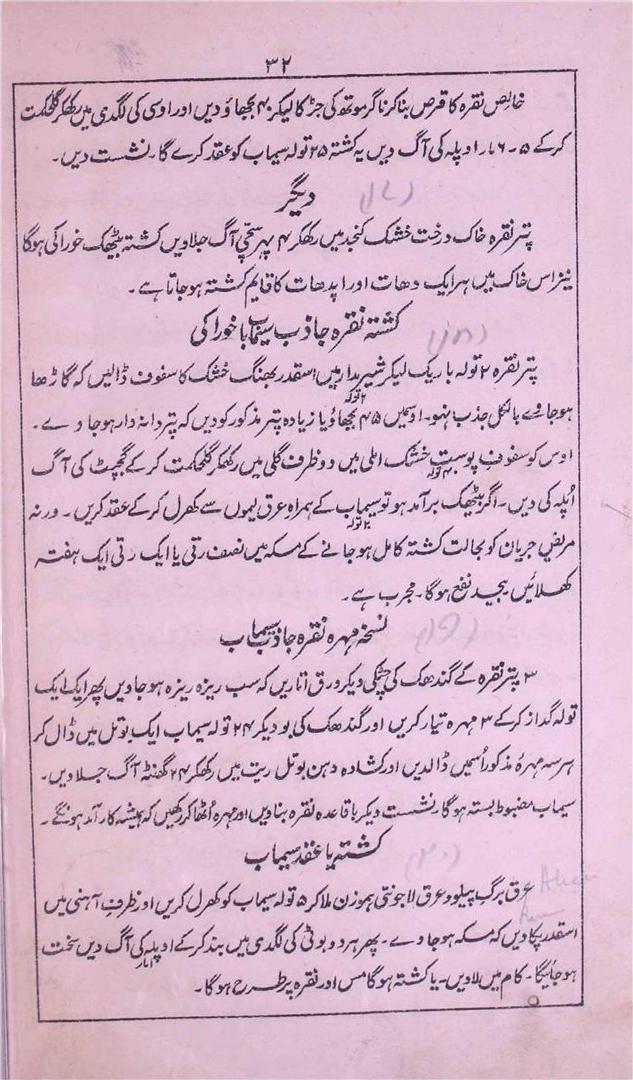 ۳۲
خالص نقرہ کا قرص بنا کر ناگر موتھ کی جڑ کا لیکر ۴۰ بجھاؤ دیں اور اوسی کی لگدی میں رکھکر گلحکمت
کر کے ۵ ۔ ۶ مار اوپلہ کی آگ دیں یہ کشتہ ۲۵ تولہ سیماب کو عقد کرے گا ۔ نشست دیں ۔
دیگر
پتر نقرہ خاک درخت خشک کنجد میں رکھکر ۴ پہر سخچی آگ جلاویں کشتہ بیٹھک خوراکی ہوگا
نیز اس خاک میں ہر ایک دھات اور اپدھات کا قایم کشتہ ہو جاتا ہے ۔
کشتہ نقرہ جاذب سیماب باخوراکی
پتر نقرہ ۲ تولہ باریک لیکر شیر مدار میں اسقدر بھنگ خشک کا سفوف ڈالیں کہ گاڑھا
ہو جاوے بالکل جذب نہو ۔ اوسمیں ۴۵ بجھاؤ یا زیادہ پتر مذکور کو دیں کہ پتر دانہ دار ہو جاوے ۔
اوس کو سفوف پوست خشک املی میں دو ظرف گلی میں رکھکر گلحکمت کر کے گجپٹ کی آگ
اُپلہ کی دیں ۔ اگر بیٹھک برآمد ہو تو سیماب کے ہمراہ عرق لیموں سے کھرل کر کے عقد کریں ۔ ورنہ
مریض جریان کو بحالت کشتہ کامل ہو جانے کے مسکہ میں نصف رتی یا ایک رتی ایک ہفتہ
کھلائیں بیحد نفع ہوگا ۔ مجرب ہے ۔
نسخہ مہرہ نقرہ جاذب سیماب
۳ پتر نقرہ کے گندھک کی چٹکی دیکر ورق اتاریں کہ سب ریزہ ریزہ ہو جاویں پھر ایک ایک
تولہ گداز کر کے ۳ مہرہ تیار کریں اور گندھک کی بو دیکر ۲۴ تولہ سیماب ایک بوتل میں ڈال کر
ہر سہ مہرۂ مذکور اُسمیں ڈالدیں اور کشادہ دہن بوتل ریت میں رکھکر ۲۴ گھنٹہ آگ جلاویں ۔
سیماب مضبوط بستہ ہوگا ۔ نشست دیکر باقاعدہ نقرہ بناویں اور مہرہ اُٹھا کر رکھیں کہ ہمیشہ کار آمد ہونگے ۔
کشتہ یا عقد سیماب
عرق برگ پیلو و عرق لاجونتی ہموزن ملا کر ۵ تولہ سیماب کو کھرل کریں اور ظرف آہنی میں
اسقدر پکاویں کہ مسکہ ہو جاوے ۔ پھر ہر دو بوٹی کی لگدی میں بند کر کے اوپلہ کی آگ دیں سخت
ہو جائیگا ۔ کام میں لاویں ۔ یا کشتہ ہوگا مس اور نقرہ پر طرح ہوگا ۔